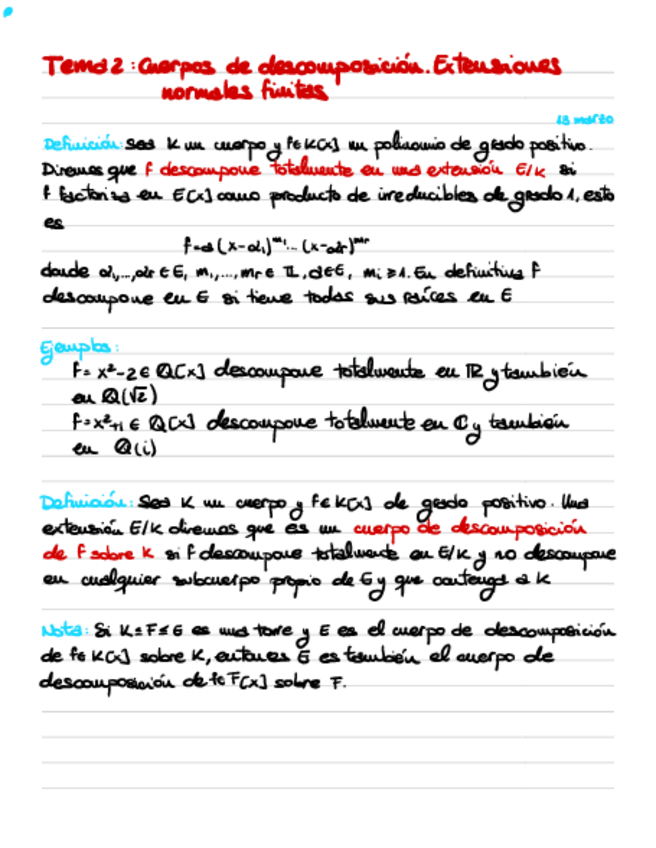 Tema 2: Cuerpos de descomposición. Extensiones
normales finitas
13 marzo
Definición: Sea K un cuerpo y f∈K[x] un polinomio de grado positivo.
Diremos que f descompone totalmente en una extensión E/K si
f factoriza en E[x] como producto de irreducibles de grado 1, esto
es
f=a(x-α₁)^m₁... (x-αr)^mr
donde α₁,...,αr ∈ E, m₁,...,mr ∈ ℤ, a∈E, mi ≥1. En definitiva f
descompone en E si tiene todas sus raíces en E
Ejemplos:
f= x²-2 ∈ ℚ[x] descompone totalmente en ℝ y también
en ℚ(√2)
f=x²+1 ∈ ℚ[x] descompone totalmente en ℂ y también
en ℚ(i)
Definición: Sea K un cuerpo y f∈K[x] de grado positivo. Una
extensión E/K diremos que es un cuerpo de descomposición
de f sobre K si f descompone totalmente en E/K y no descompone
en cualquier subcuerpo propio de E y que contenga a K
Nota: Si K≤F≤E es una torre y E es el cuerpo de descomposición
de f∈K[x] sobre K, entonces E es también el cuerpo de
descomposición de f∈F[x] sobre F.